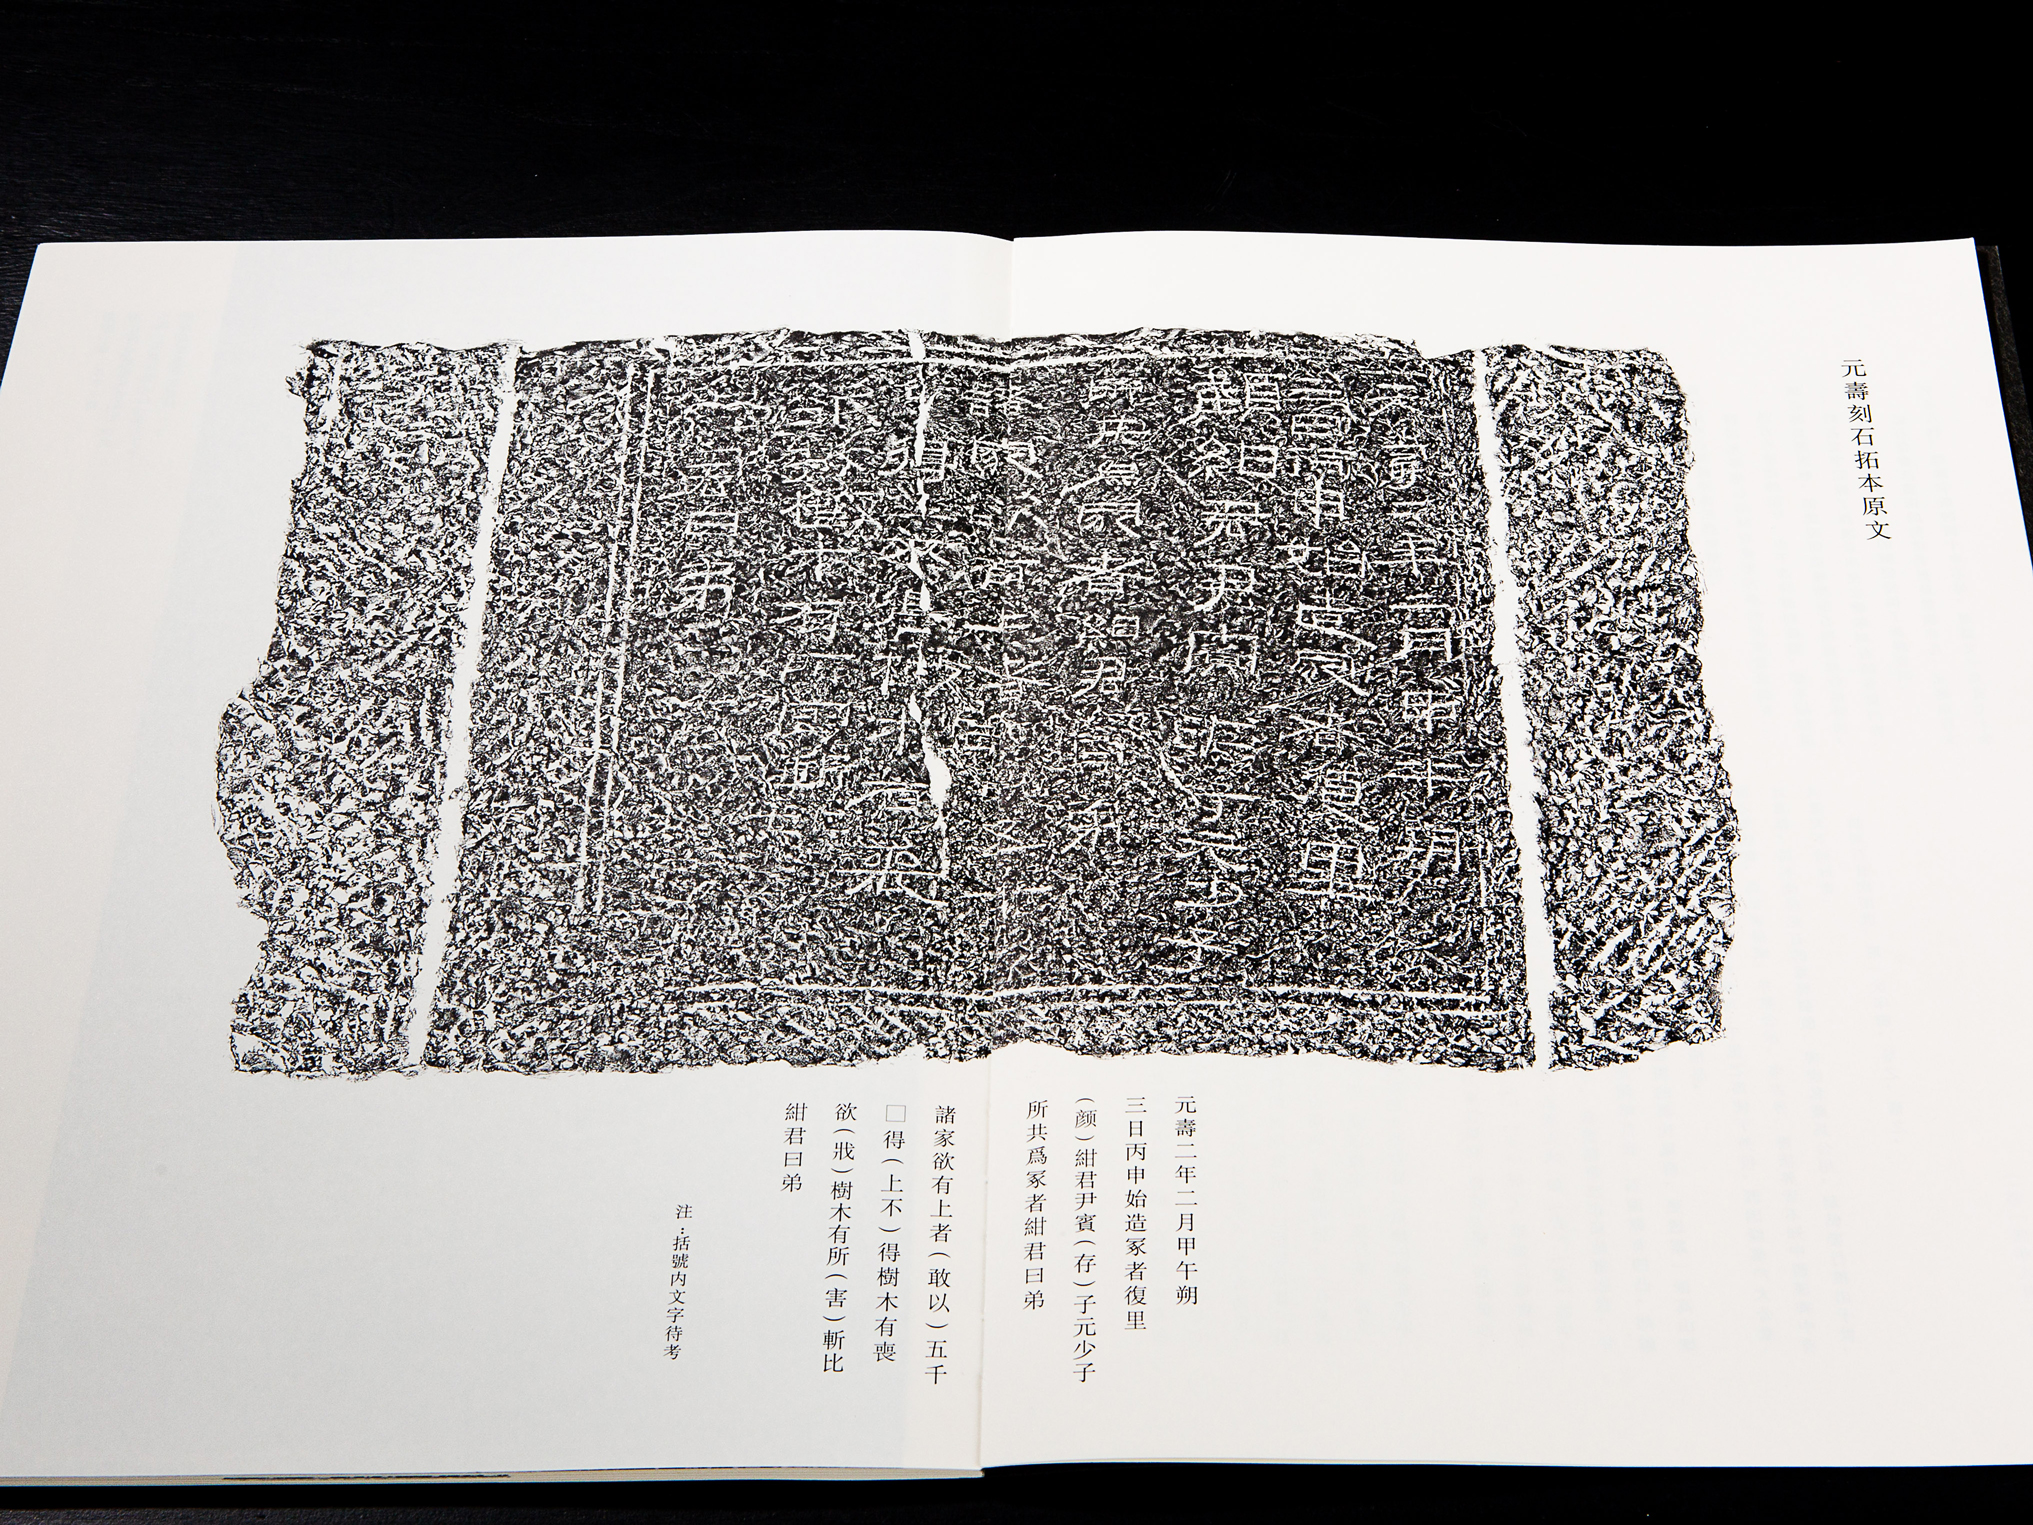 元壽刻石拓本原文
元壽二年二月甲午朔
三日丙申始造冢者復里
(颜)紺君尹賓(存)子元少子
所共爲冢者紺君曰弟
諸家欲有上者(敢以)五千
□得(上不)得樹木有喪
欲(戕)樹木有所(害)斬比
紺君曰弟
注:括號内文字待考